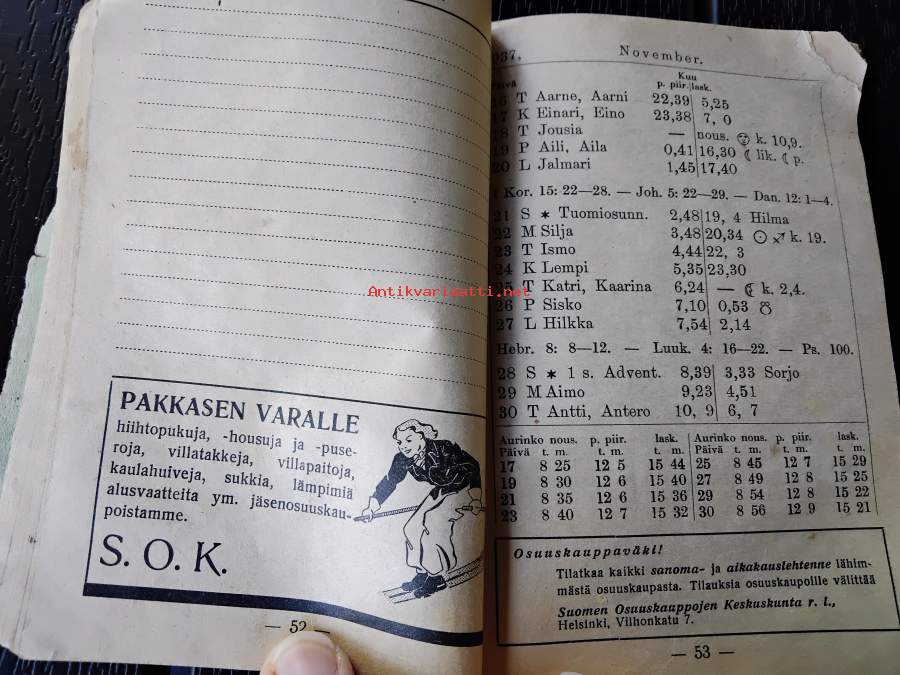 PAKKASEN VARALLE
hiihtopukuja, -housuja ja -puse-
roja, villatakkeja, villapaitoja,
kaulahuiveja, sukkia, lämpimiä
alusvaatteita ym. jäsenosuuskau-
poistamme.
S. O. K.
— 52 —
937. November.
Kuu
p. piir. lask.
T Aarne, Aarni 22,39 5,25
K Einari, Eino 23,38 7, 0
18 T Jousia — nous. k. 10,9.
19 P Aili, Aila 0,41 16,30 ☾ lik. ☾ p.
20 L Jalmari 1,45 17,40
Kor. 15: 22—28. — Joh. 5: 22—29. — Dan. 12: 1—4.
21 S * Tuomiosunn. 2,48 19, 4 Hilma
22 M Silja 3,48 20,34 ☉ ♐ k. 19.
23 T Ismo 4,44 22, 3
24 K Lempi 5,35 23,30
25 T Katri, Kaarina 6,24 — ☾ k. 2,4.
26 P Sisko 7,10 0,53 ☋
27 L Hilkka 7,54 2,14
Hebr. 8: 8—12. — Luuk. 4: 16—22. — Ps. 100.
28 S * 1 s. Advent. 8,39 3,33 Sorjo
29 M Aimo 9,23 4,51
30 T Antti, Antero 10, 9 6, 7
Aurinko nous. p. piir. lask. Aurinko nous. p. piir. lask.
Päivä t. m. t. m. t. m. Päivä t. m. t. m. t. m.
17 8 25 12 5 15 44 25 8 45 12 7 15 29
19 8 30 12 6 15 40 27 8 49 12 8 15 25
21 8 35 12 6 15 36 29 8 54 12 8 15 22
23 8 40 12 7 15 32 30 8 56 12 9 15 21
Osuuskauppaväki!
Tilatkaa kaikki sanoma- ja aikakauslehtenne lähim-
mästä osuuskaupasta. Tilauksia osuuskaupoille välittää
Suomen Osuuskauppojen Keskuskunta r. l.,
Helsinki, Vilhonkatu 7.
— 53 —
Antikvariaatti.net